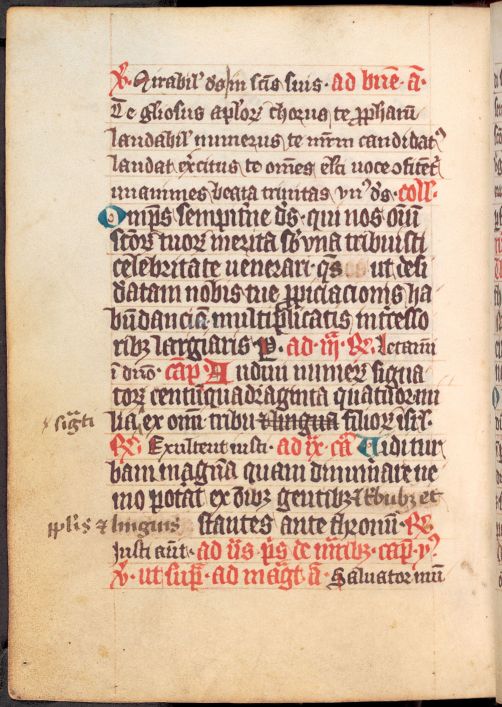 ℣. Mirabil' ds in scis suis. ad bn̄e. a.
Te gl'iosus aplor' chorus te ꝓphaꝝ
laudabil' numerus te mrm̄ candidat'
laudat ex̄citus te om̄es el'ti uoce ꝯfitēt'
unanimes beata trinitas vn' ds. coll.
Omp̄s sempit̄ne ds. qui nos om̄
sc̄oꝝ tuoꝝ merita sb vna tribuisti
celebritate uenerari. qs ut desi
datam nobis tue ꝓpiciacionis ha
būdanciā multiplicatis int̄cesso
ribꝫ largiaris. P. ad iij. ℟. letamī
ī dn̄o. cap. Audiui numeꝝ signa
toꝝ centūquadraginta quatuor mi
lia ex om̄i tribu filioꝝ isrl.
⁊ sig̃ti
℟. Exultent iusti. ad ix. ca. Uidi tur
bam magnā quam dinumiare ne
mo potat ex oībꝫ gentibꝫ ⁊ tbubꝫ et
pplis ⁊ linguis stantes ante thronū. ℟.
Justi aūt. ad ij̄s. ps̄ de mrībꝫ. cap. ꝫ
℣. ut sup̄. ad mag̃t a. Saluator mū